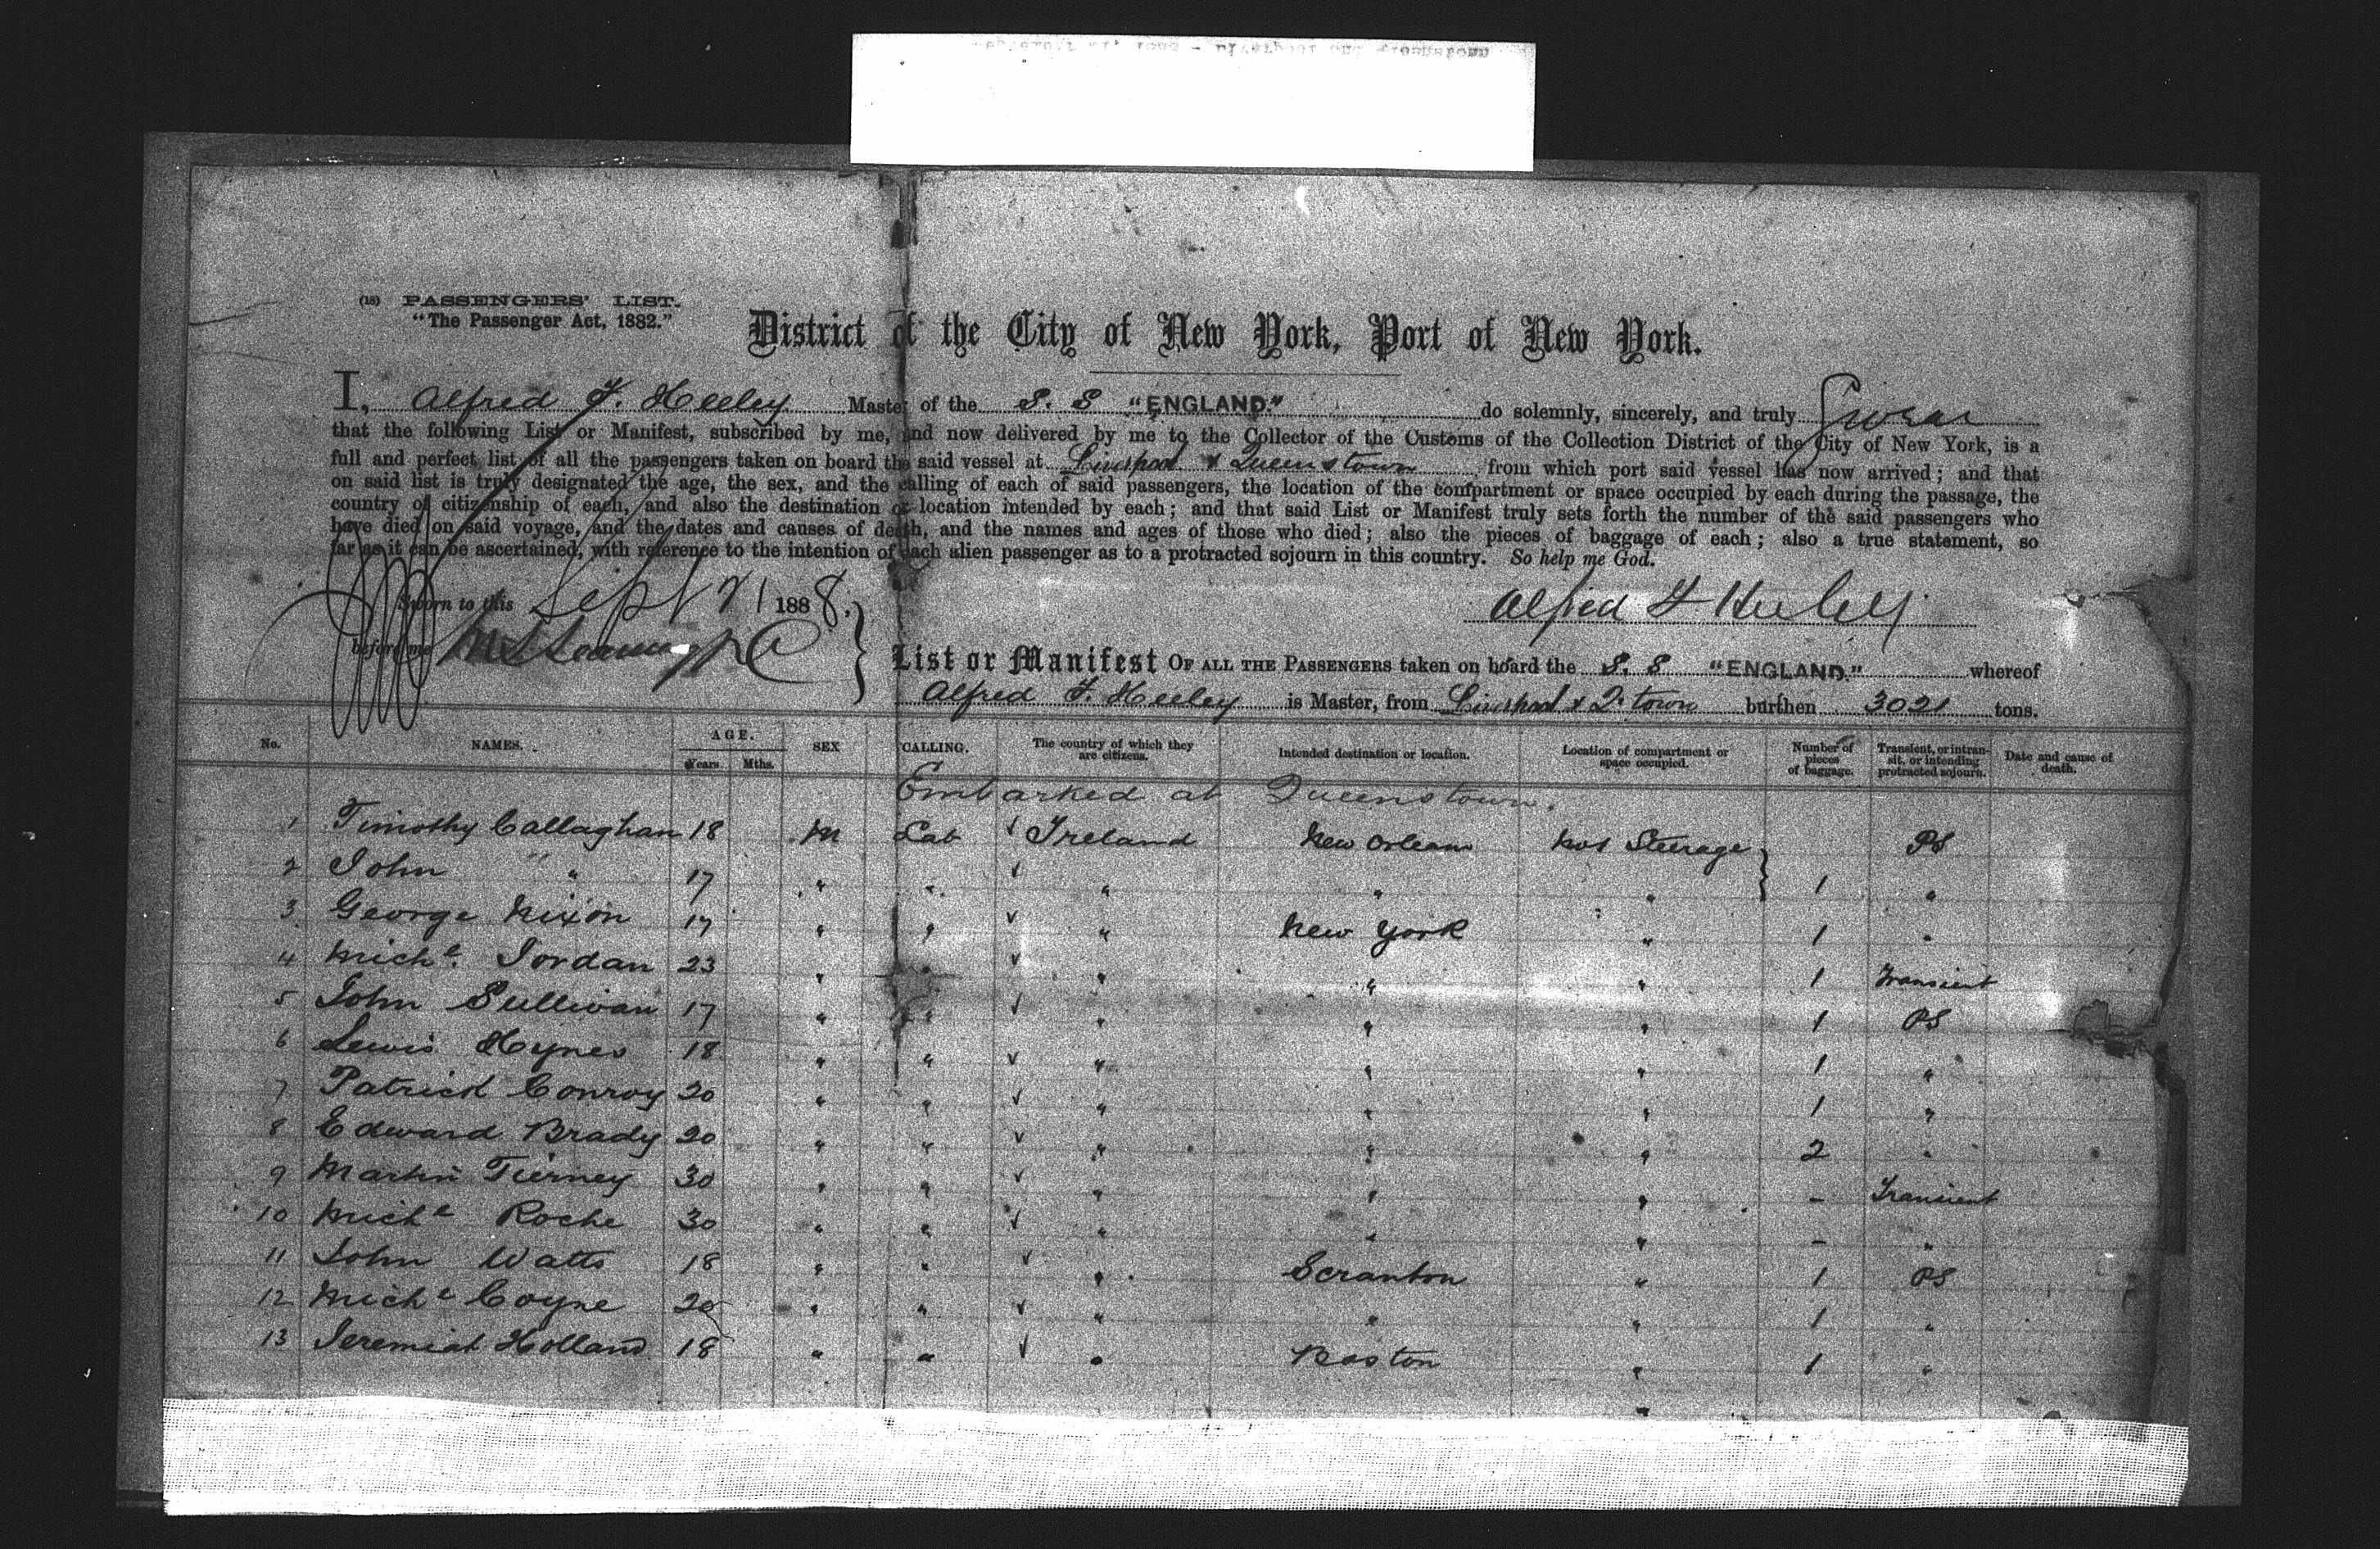 (18) PASSENGERS' LIST.
"The Passenger Act, 1882."
District of the City of New York, Port of New York.
I, Alfred F. Heeley Master of the S. S "ENGLAND." do solemnly, sincerely, and truly Swear
that the following List or Manifest, subscribed by me, and now delivered by me to the Collector of the Customs of the Collection District of the City of New York, is a
full and perfect list of all the passengers taken on board the said vessel at Liverpool & Queenstown from which port said vessel has now arrived; and that
on said list is truly designated the age, the sex, and the calling of each of said passengers, the location of the compartment or space occupied by each during the passage, the
country of citizenship of each, and also the destination or location intended by each; and that said List or Manifest truly sets forth the number of the said passengers who
have died on said voyage, and the dates and causes of death, and the names and ages of those who died; also the pieces of baggage of each; also a true statement, so
far as it can be ascertained, with reference to the intention of each alien passenger as to a protracted sojourn in this country. So help me God.
Sworn to this Sept 21 1888.
Alfred F Heeley
before me
List or Manifest OF ALL THE PASSENGERS taken on board the S. S "ENGLAND." whereof
Alfred F. Heeley is Master, from Liverpool & Q.town burthen 3021 tons.
No. NAMES. AGE. Years. Mths. SEX CALLING. The country of which they are citizens. Intended destination or location. Location of compartment or space occupied. Number of pieces of baggage. Transient, or intransit, or intending protracted sojourn. Date and cause of death.
Embarked at Queenstown.
1 Timothy Callaghan 18 M Lab ✓ Ireland New Orleans No 1 Steerage PS
2 John " 17 " " ✓ " " " 1 "
3 George Nixon 17 " " ✓ " New York " 1 "
4 Michl. Jordan 23 " " ✓ " " " 1 Transient
5 John Sullivan 17 " " ✓ " " " 1 PS
6 Lewis Hynes 18 " " ✓ " " " 1 "
7 Patrick Conroy 20 " " ✓ " " " 1 "
8 Edward Brady 20 " " ✓ " " " 2 "
9 Martin Tierney 30 " " ✓ " " " - Transient
10 Michl Roche 30 " " ✓ " " " - "
11 John Watts 18 " " ✓ " Scranton " 1 PS
12 Michl Coyne 20 " " ✓ " " " 1 "
13 Jeremiah Holland 18 " " ✓ " Boston " 1 "
"